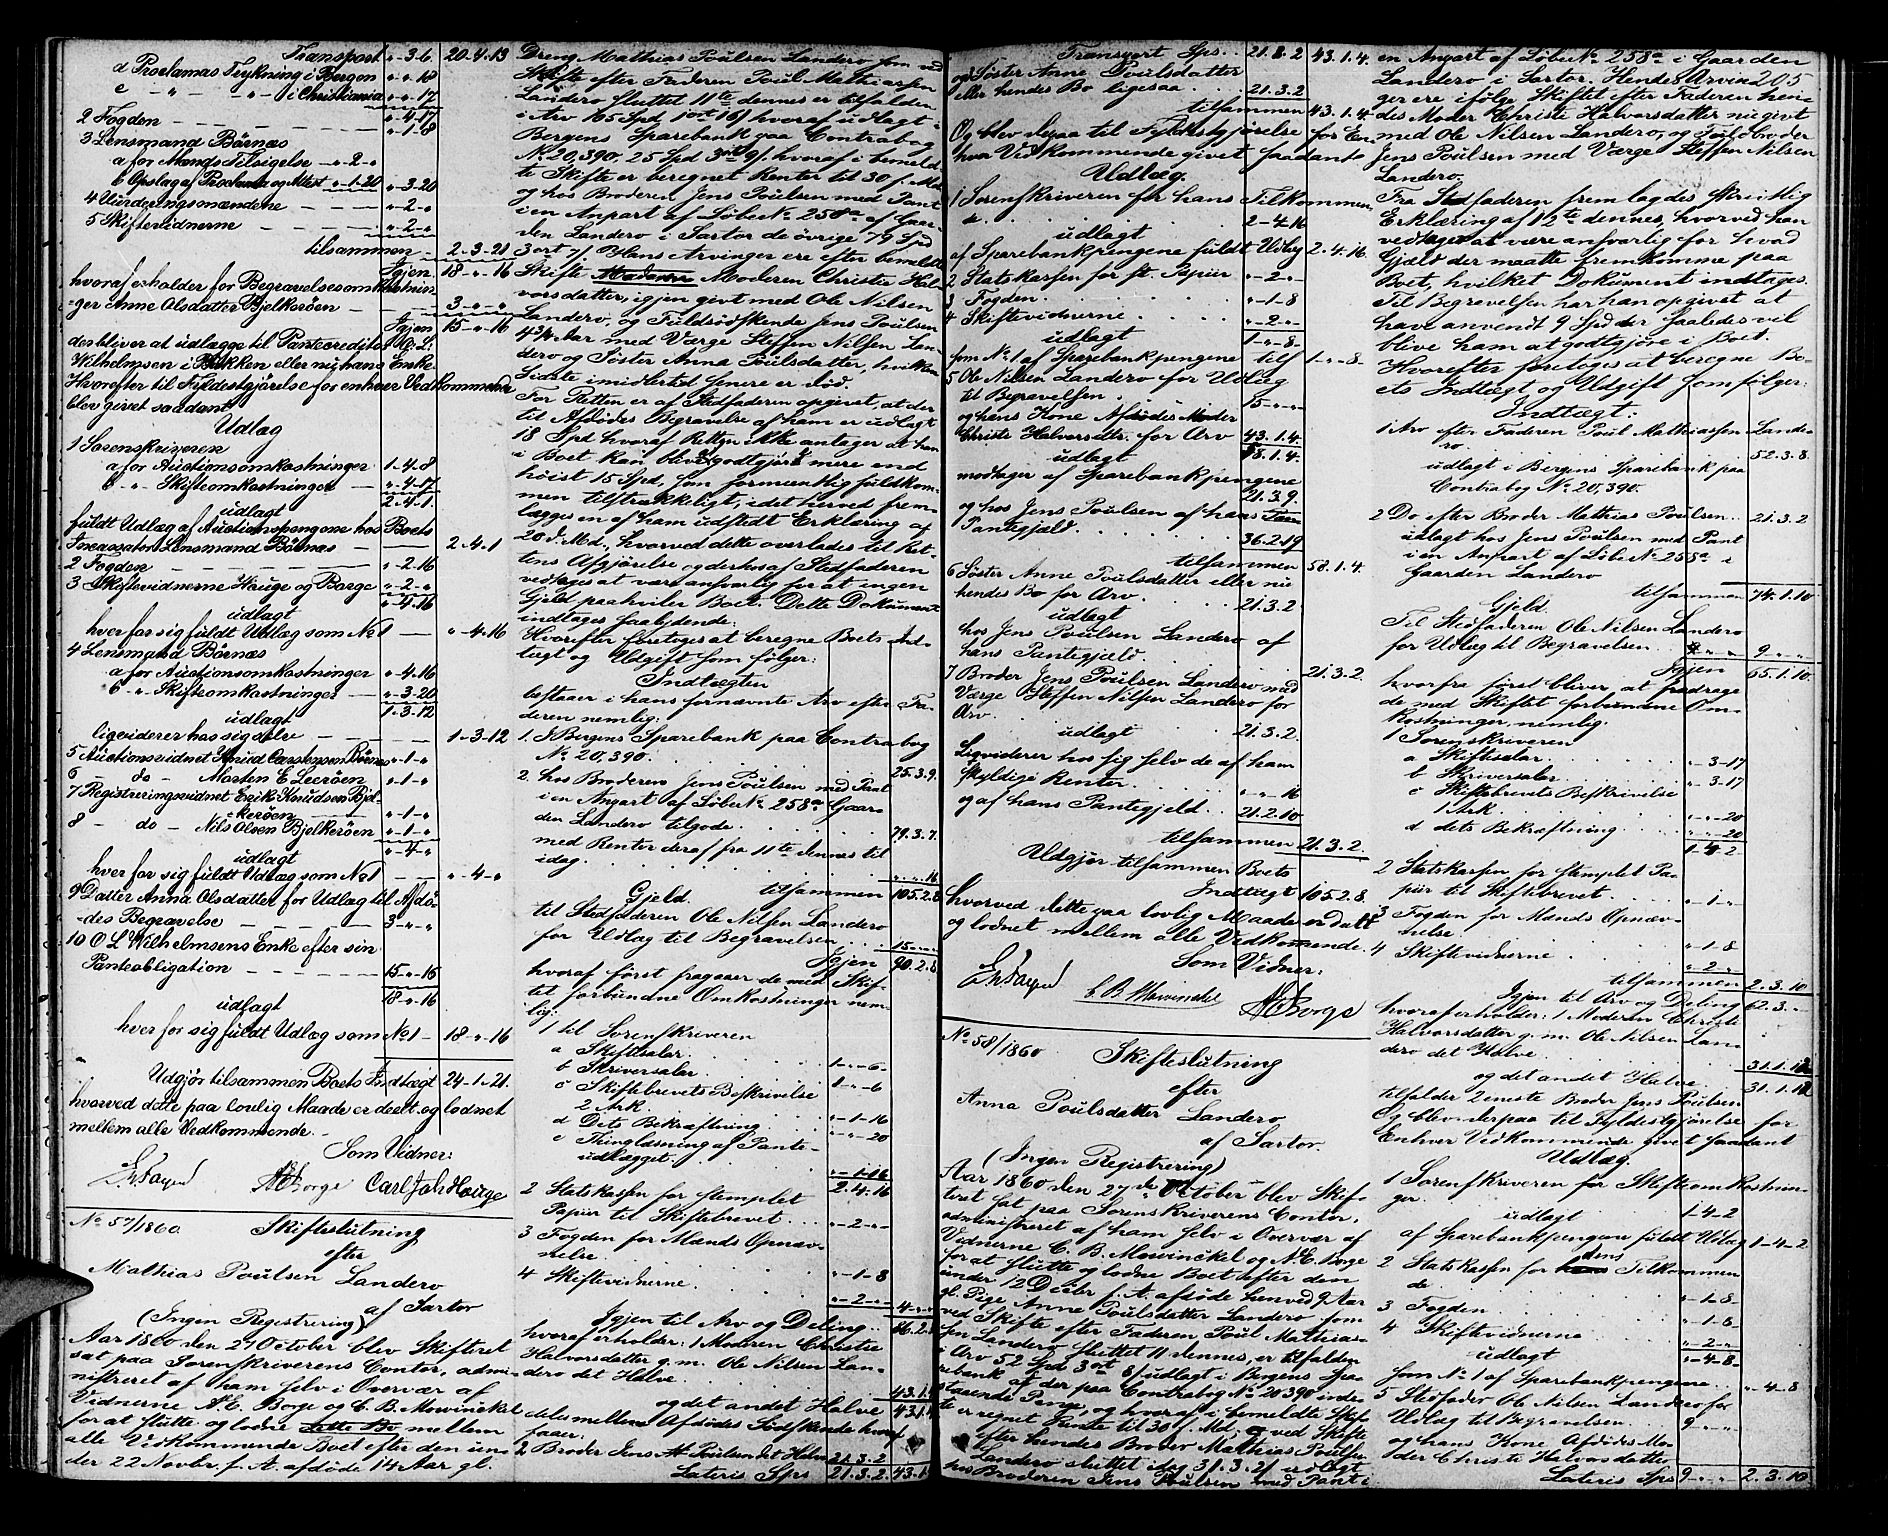 Transport „-3-6 20-4-13
d Proclamas Trykning i Bergen „-„-18
e „ - „ - i Christiania „-„-17
„-4-17
2 Fogden „-1-8
3 Lensmand Börnæs
a for Mænds Tilsigelse „-2-„
b Opslag af Proclama og Attest „-1-20 „-3-20
4 Vurderingsmændene „-2-„
5 Skiftevidnerne „-2-„
tilsammen 2-3-21
Igjen 18-„-16
hvoraf erholder for Begravelsesomkostnin-
ger Anne Olsdatter Bjelkeröen 3-„-„
Igjen 15-„-16
der bliver at udlægge til Pantecreditor O. L.
Wilhelmsen i Bakken eller nu hans Enke.
Hvorefter til Fyldestgjørelse for enhver Vedkommende
blev givet saadant
Udlæg
1 Sorenskriveren
a for Auctionsomkostninger 1-4-8
b - „ - Skifteomkostninger „-4-17
2-4-1
udlagt
fuldt Udlæg af Auctionspengene hos Boets
Incassator Lensmand Börnæs 2-4-1
2 Fogden „-2-16
3 Skiftevidnerne Hauge og Borge „-2-„
„-4-16
udlagt
hver for sig fuldt Udlæg som No 1 „-4-16
4 Lensmand Börnæs
a for Auctionsomkostninger „-4-16
b - „ - Skifteomkostninger „-3-20
1-3-12
udlagt
ligviderer hos sig selv 1-3-12
5 Auctionsvidnet Knud Carstensen Börnæs „-1-„
6 - do - Morten E Leeröen „-1-„
7 Registreringsvidnet Erik Knudsen Bjel-
keröen „-1-„
8 - do - Nils Olsen Bjelkeröen „-1-„
„-4-„
udlagt
hver for sig fuldt Udlæg som No 1 „-4-„
9 Datter Anna Olsdatter for Udlæg til Afdö-
des Begravelse 3-„-„
10 O L Wilhelmsens Enke efter sin
Panteobligation 15-„-16
18-„-16
udlagt
hver for sig fuldt Udlæg som No 1 18-„-16
Udgjør tilsammen Boets Indtægt 24-1-21.
hvorved dette paa lovlig Maade er deelt og lodnet
mellem alle Vedkommende.
Som Vidner:
AC Borge Carl Joh Hauge
No 57/1860 Skifteslutning
efter
Mathias Poulsen Landero
af Sartor
(Ingen Registrering)
Aar 1860 den 27 October blev Skifteret
sat paa Sorenskriverens Contor, admi-
nistreret af ham selv i Overvær af
Vidnerne A. C. Borge og C. B. Mowinckel
for at slutte og lodne dette Bo mellem
alle Vedkommende Boet efter den un-
der 22 Novbr. f. A. afdöde 14 Aar gl.
Dreng Mathias Poulsen Landero som ved
Skifte efter Faderen Poul Mathiassen
Landero sluttet 11te dennes er tilfalden
i Arv 105 Spd 1 ort 16 s hvoraf udlagt i
Bergens Sparebank paa Contrabog
No 20,390. 25 Spd 3 ort 9 s. hvoraf i bemeld-
te Skifte er beregnet Renter til 30 f. Md.
og hos Broderen Jens Poulsen med Pant
i en Anpart af Löbe No 258a af Gaar-
den Landero i Sartor de övrige 79 Spd
3 ort 7 s. Hans Arvinger ere efter bemeldte
Skifte Moderen Moderen Christie Hal-
vorsdatter, igjen givt med Ole Nilsen
Landero, og Fuldsödskende Jens Poulsen
4 3/4 Aar med Værge Steffen Nilsen Lan-
dero og Söster Anna Poulsdatter, hvilken
Sidste imidlertid senere er död.
For Retten er af Stedfaderen opgivet, at der
til Afdödes Begravelse af ham er udlagt
18 Spd hvoraf Retten ikke antager at han
i Boet kan blive godtgjort mere end
höist 15 Spd, som formeentlig fuldkom-
men tilstrækkeligt, idet herved frem-
lægges en af ham udstedt Erklæring af
20 d. Md., hvorved dette overlades til Ret-
tens Afgjörelse og derhos af Stedfaderen
vedtages at være ansvarlig for at ingen
Gjeld paahviler Boet. Dette Dokument
indtages saalydende:
Hvorefter foretoges at beregne Boets Ind-
tægt og Udgift som fölger:
Indtægten
bestaaer i hans fornævnte Arv efter Fa-
deren nemlig:
1. I Bergens Sparebank paa Contrabog
No 20,390. 25.3.9.
2. hos Broderen Jens Poulsen med Pant
i en Anpart af Löbe No 258a Gaar-
den Landero tilgode. 79.3.7.
med Renter deraf fra 11te dennes til
idag. „.„.16
tilsammen 105.2.8
Gjeld.
til Stedfaderen Ole Nilsen Landero
for Udlæg til Begravelsen 15-„-„
Igjen 90.2.8
hvoraf först fragaaer de med Skif-
tet forbundne Omkostninger nem-
lig:
1 til Sorenskriveren
a Skiftesalar. 1-„-6-
b Skriversalar. 1-„-6
c Skiftebrevets Beskrivelse
2 Ark. „-1-16
d Dets Bekræftning. „-„-20
e Thinglæsning af Pante-
udlægget. „-1-16
2.4.16
2 Statskassen for stemplet
Papiir til Skiftebrevet. „-2-„
3 Fogden for Mænds Opnæv-
nelse. „-1-8
4 Skiftevidnerne. „-2-„ 4-„-„
Igjen til Arv og Deling 86.2.8
hvoraf erholder: 1 Moderen Christie
Halvorsdatter g. m. Ole Nilsen Lan-
dero det Halve. 43.1.4
og det andet Halve 43.1.4
deles mellem Afdödes Södskende hvoraf
faaer:
2 Broder Jens Poulsen det Halve 21.3.2
Lateris Sps 21.3.2 43.1.4
Transport Sps. 21.3.2 43.1.4.
og Söster Anne Poulsdatter
eller hendes Bo ligesaa. 21.3.2
tilsammen 43.1.4.
Og blev depaa til Fyldestgjörelse for En-
hver Vedkommende givet saadant
Udlæg.
1 Sorenskriveren for hans Tilkommen-
de. 2-4-16
udlagt
af Sparebankpengene fuldt Udlæg 2.4.16.
2 Statskassen for st. Papiir „-2-„
3 Fogden. „-1-8
4 Skiftevidnerne. „-2-„
1-„-8-
udlagt
som No 1 af Sparebankpengene 1-„-8-
5 Ole Nilsen Landero for Udlæg
til Begravelsen. 15-„-„
og hans Kone Afdödes Moder
Christie Halvorsdtr. for Arv 43.1.4.
58.1.4.
udlagt
modtager af Sparebankpengene
21.3.9.
og hos Jens Poulsen af hans
Pantegjæld. 36.2.19
tilsammen 58.1.4.
6 Söster Anne Poulsdatter eller nu
hendes Bo for Arv. 21.3.2
udlagt
hos Jens Poulsen Landero af
hans Pantegjæld. 21.3.2.
7 Broder Jens Poulsen Landero med
Værge Steffen Nilsen Landero for
Arv. 21.3.2.
udlagt
Ligviderer hos sig selv de af ham
skyldige Renter. „-„-16
og af hans Pantegjeld. 21.2.10
tilsammen 21.3.2.
Udgjør tilsammen Boets
Indtægt 105.2.8.
hvorved dette paa lovlig Maade er delt
og lodnet mellem alle Vedkommende.
Som Vidner:
C. B. Mowinckel AC Borge
No 58/1860 Skifteslutning
efter
Anna Poulsdatter Landero
af Sartor.
(Ingen Registrering)
Aar 1860 den 27de October blev Skif-
teret sat paa Sorenskriverens Contor,
administreret af ham selv i Overvær af
Vidnerne C. B. Mowinckel og A. C. Borge
for at slutte og lodne Boet efter den
under 12 Decbr f. A. afdöde henved 9 Aar
gl. Pige Anne Poulsdatter Landero som
ved Skifte efter Faderen Poul Mathias-
sen Landero sluttet 11 dennes, er tilfalden
i Arv 52 Spd 3 ort 8 s udlagt i Bergens Spa-
rebank af der paa Contrabog No 20390 inde-
staaende Penge, og hvoraf i bemeldte Skif-
te er regnet Rente til 30 f. Md., og ved Skifte
efter hendes Broder Mathias Poulsen
Landero sluttet idag 21.3.2 udlagt
hos Broderen Jens Poulsen med Pant i
en Anpart af Löbe No 258a i Gaarden
Landero i Sartor. Hendes Arvin-
ger ere ifölge Skiftet efter Faderen hen-
des Moder Christie Halvorsdatter nu givt
med Ole Nilsen Landero, og Fuldbroder
Jens Poulsen med Værge Steffen Nilsen
Landero.
Fra Stedfaderen fremlagdes skriftlig
Erklæring af 12te dennes, hvorved han
vedtager at være ansvarlig for hvad
Gjæld der maatte fremkomme paa
Boet, hvilket Dokument indtages.
Til Begravelsen har han opgivet at
have anvendt 9 Spd der saaledes vil
blive ham at godtgjöre i Boet.
Hvorefter foretoges at beregne Bo-
ets Indtægt og Udgift som fölger:
Indtægt:
1 Arv efter Faderen Poul Mathiassen Lande-
ro. 52.3.8.
udlagt i Bergens Sparebank paa
Contrabog No 20,390.
2 Do efter Broder Mathias Poulsen. 21.3.2
udlagt hos Jens Poulsen med Pant
i en Anpart af Löbe No 258a i
Gaarden Landero
tilsammen 74.1.10
Gjeld.
Til Stedfaderen Ole Nilsen Landero
for Udlæg til Begravelsen 9-„-„
Igjen 65.1.10.
hvorfra först bliver at fradrage
de med Skiftet forbundne Om-
kostninger, nemlig:
1 Sorenskriveren
a Skiftesalar. „-3-17
b Skriversalar. „-3-17
c Skiftebrevets Beskrivelse
1 Ark. „-„-20
d dets Bekræftning. „-„-20
1-4-2-
2 Statskassen for stemplet Pa-
piir til Skiftebrevet. „-1-„
3 Fogden for Mænds Opnæv-
nelse. „-1-8
4 Skiftevidnerne. „-2-„
tilsammen 2.3.10
Igjen til Arv og Deling 62.3.„
hvoraf erholder: 1 Moderen Christie
Halvorsdatter g. m. Ole Nilsen Lan-
dero det Halve. 31.1.12
og det andet Halve. 31.1.12
tilfalder Eneste Broder Jens Poulsen
Og blev derpaa til Fyldestgjörelse for
Enhver Vedkommende givet saadant
Udlæg.
1 Sorenskriveren for Skifteomkostnin-
ger. 1-4-2
udlagt
af Sparebankpengene fuldt Udlæg 1-4-2
2 Statskassen for dens Tilkommen
de. „-1-8-
3 Fogden „-1-8-
4 Skiftevidnerne „-2-„
„-4-8-
udlagt
som No 1 af Sparebankpengene. „-4-8
5 Stedfader Ole Nilsen Landero for
Udlæg til Begravelsen. 9-„-„
og hans Kone Afdödes Mo-
der Christie Halvorsdatter
Lateris Sps 9-„-„ 2.3.10.